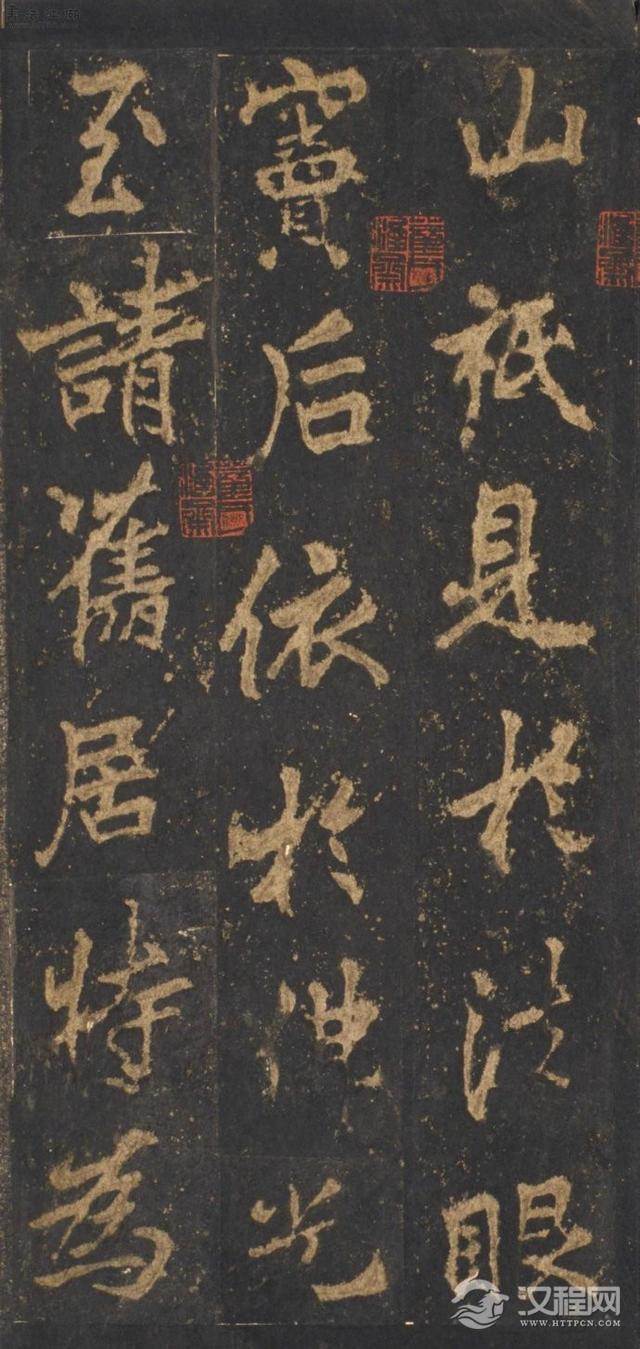 山祇見於法眼
竇后依於佛光
至請舊居特為
汉程网
WWW.HTTPCN.COM